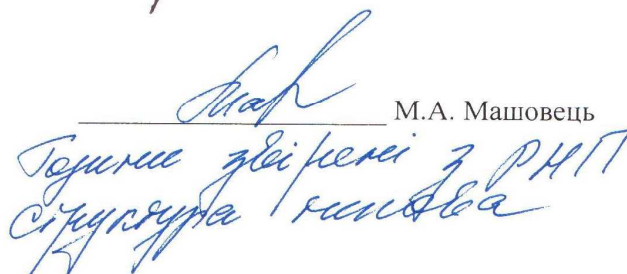 М.А. Машовець
Години звірені з РНП
структура типова